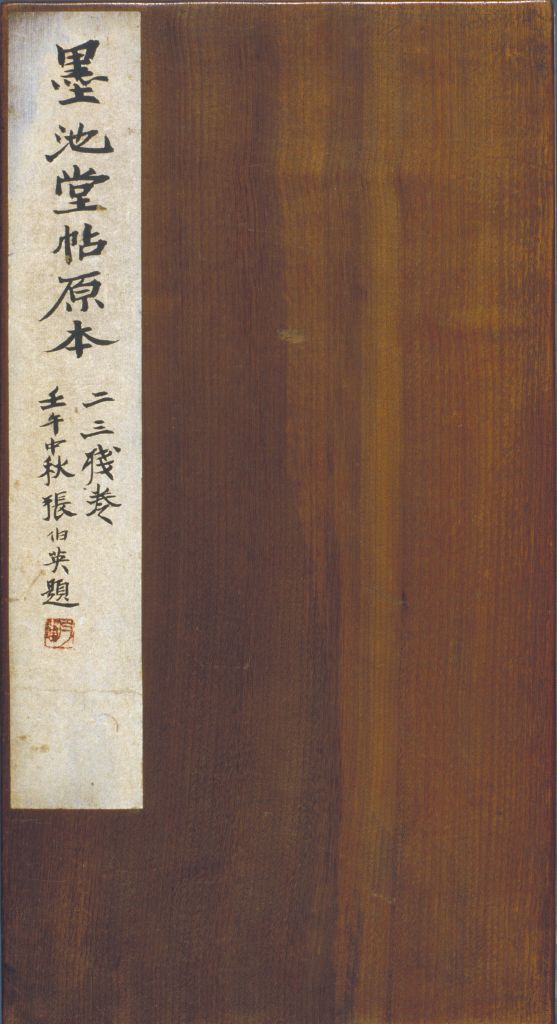 墨池堂帖原本
二三残卷
壬午中秋張伯英題